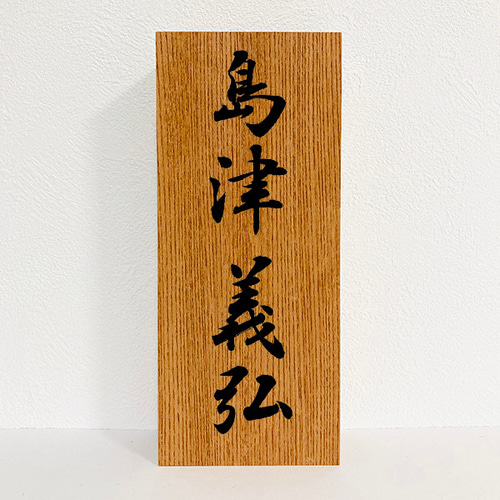 島津義弘